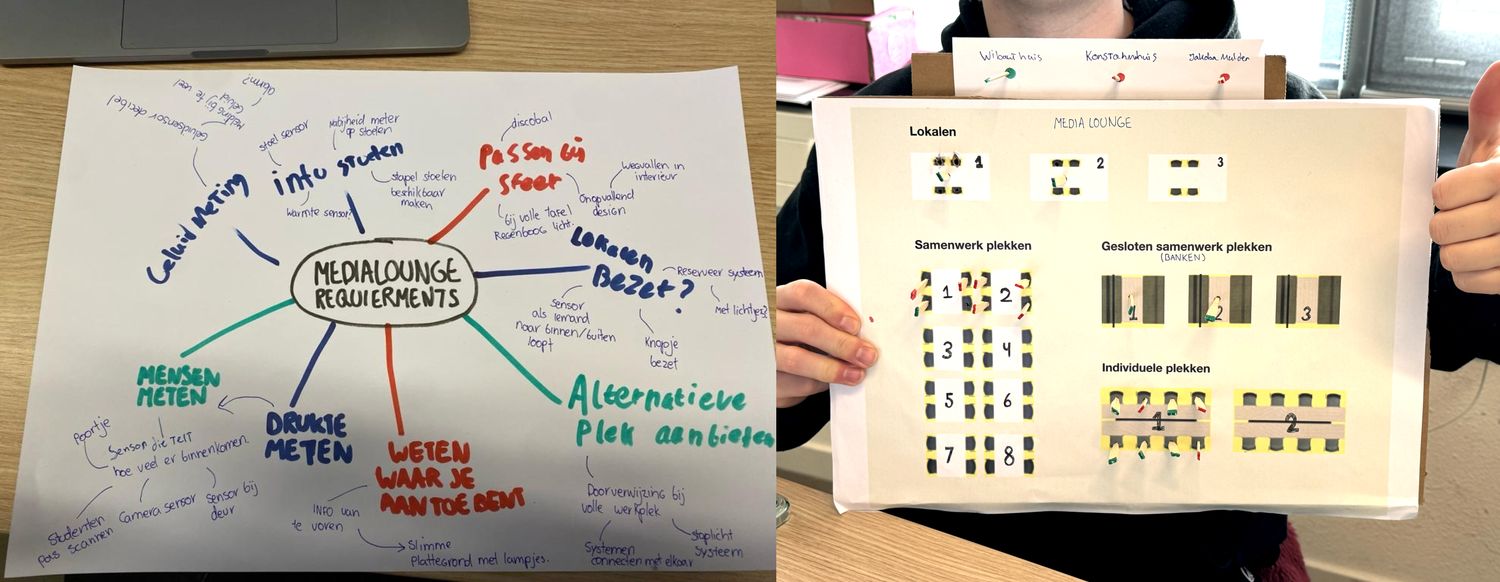 Geluidsensor decibel
Melding bij te veel
Geluid
stoel sensor
Nabijheid meter
op stoelen
info stoelen
stapel stoelen
beschikbaar
maken
Warmte sensor?
Geluid Meting
discobal
Passen bij
Sfeer
wegvallen in
interieur
Onopvallend
design
bij volle tafel
Regenboog licht.
Lokalen
Bezet?
Reserveer systeem
Met lichtjes?
sensor
als iemand
naar binnen/buiten
loopt
Knopje
bezet
MEDIALOUNGE
REQUIERMENTS
MENSEN
METEN
Poortje
Sensor die telt
hoe veel er binnenkomen.
Studenten
pas scannen
Camera sensor
sensor bij
deur
DRUKTE
METEN
WETEN
WAAR JE
AAN TOE BENT
INFO van
te voren
Slimme
Plattegrond met lampjes.
Alternatieve
Plek aanbieten
Doorverwijzing bij
volle werkplek
Systemen
connecten met elkaar
stoplicht
systeem
Wibauthuis
Jakoba Mulder
MEDIA LOUNGE
Lokalen
1
2
3
Samenwerk plekken
1
2
3
4
5
6
7
8
Gesloten samenwerk plekken
(BANKEN)
1
2
3
Individuele plekken
1
2